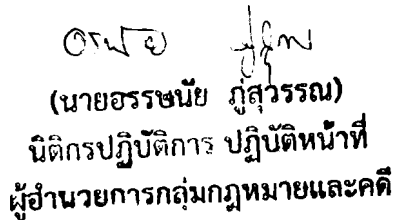 (นายอรรษนัย ภู่สุวรรณ)
นิติกรปฏิบัติการ ปฏิบัติหน้าที่
ผู้อำนวยการกลุ่มกฎหมายและคดี